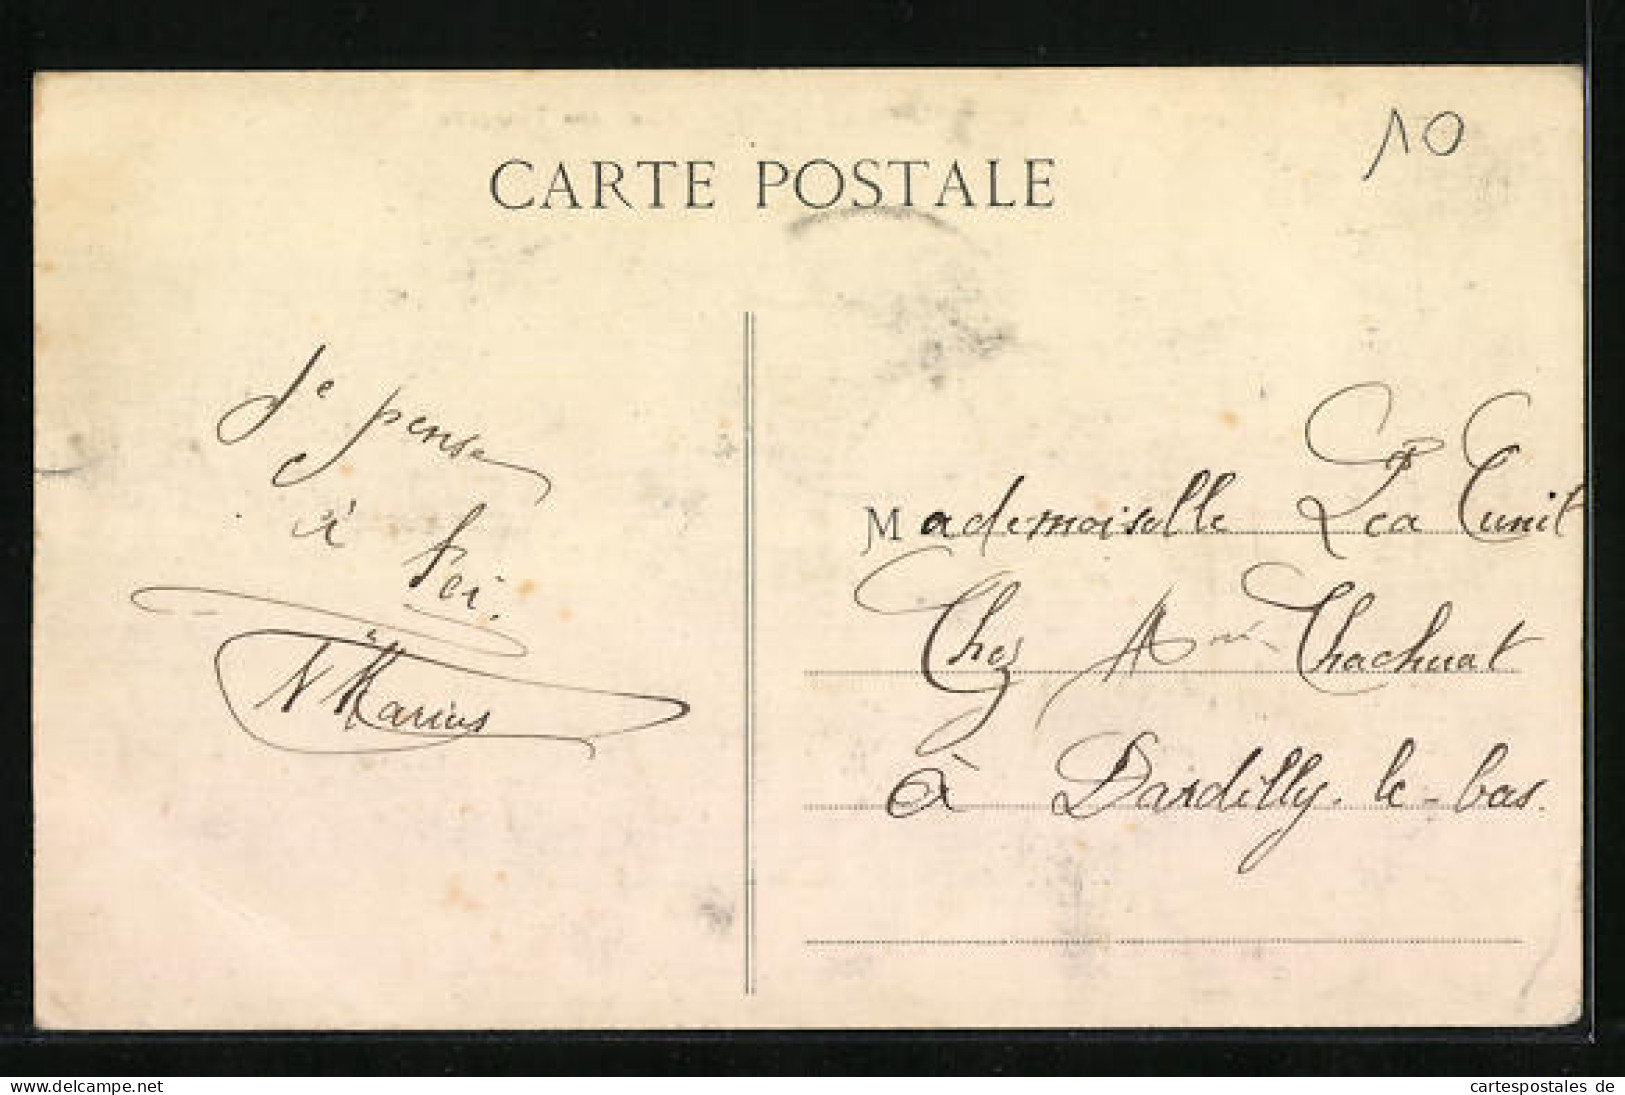 CARTE POSTALE
10
Je pense
à toi.
Marius
Mademoiselle Léa Cunit
Chez Chachuat
à Dardilly-le-bas.
cartespostales de